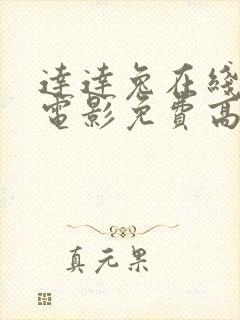 達達兔在綫
電影免費高
真元果